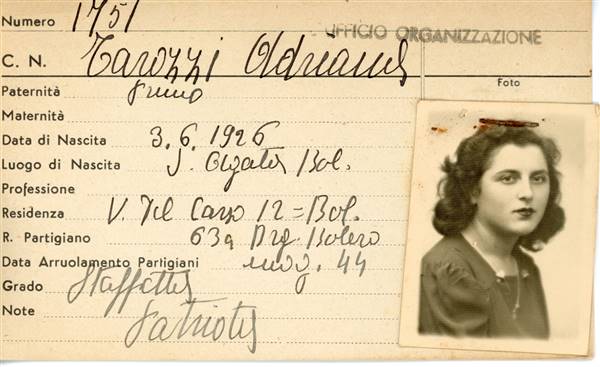 Numero 1751
UFFICIO ORGANIZZAZIONE
C. N. Tarozzi Adriana
Foto
Paternità
Maternità
Data di Nascita 3.6.1926
Luogo di Nascita S. Agata Bol.
Professione
Residenza V. Del Carso 12 = Bol.
R. Partigiano 63a Brg. Bolero
Data Arruolamento Partigiani 44
Grado Staffetta
Note Patriota